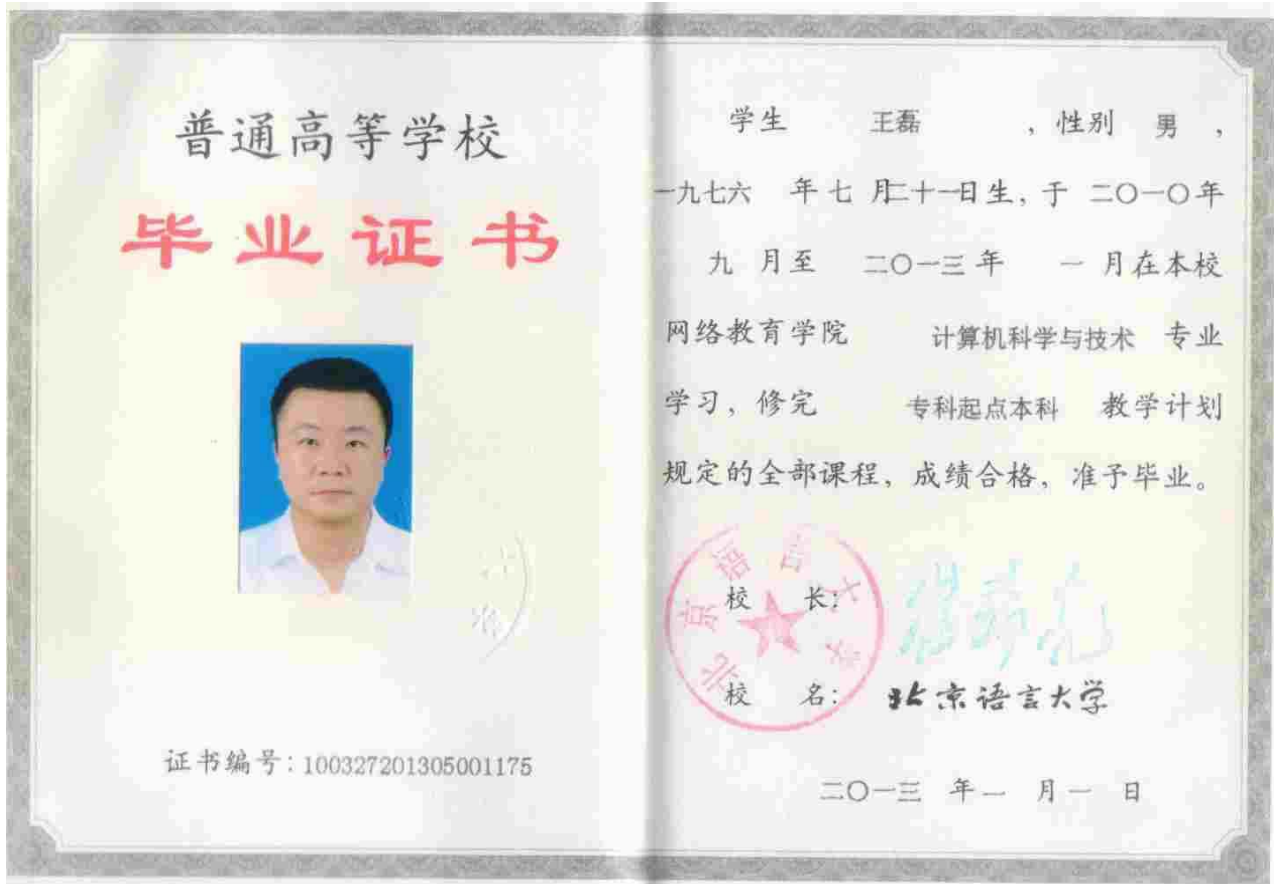 普通高等学校
毕业证书
证书编号：100327201305001175
学生 王磊 ，性别 男 ，
一九七六 年 七 月二十一日生，于 二〇一〇年
九 月至 二〇一三 年 一 月在本校
网络教育学院 计算机科学与技术 专业
学习，修完 专科起点本科 教学计划
规定的全部课程，成绩合格，准予毕业。
北京语言大学
校 长：
校 名：北京语言大学
二〇一三 年 一 月 一 日